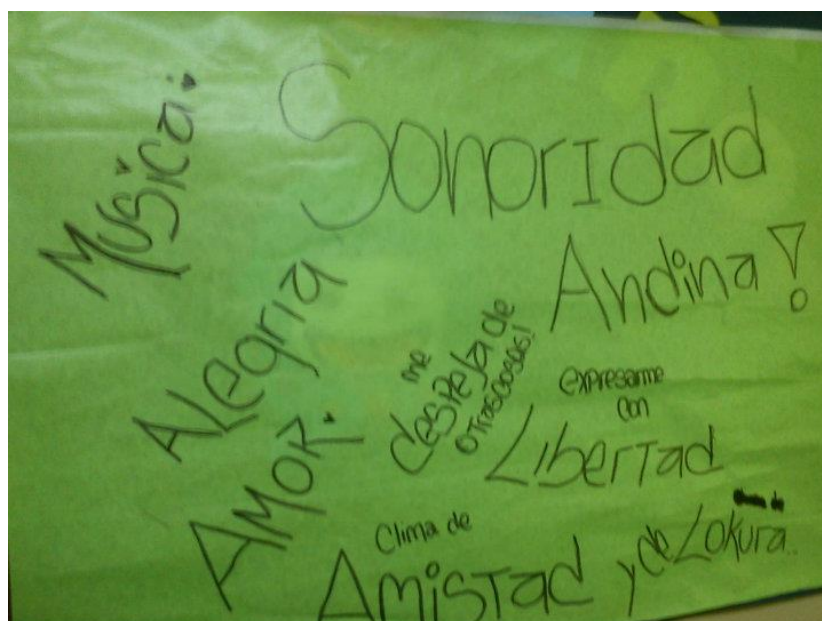 Musica:
Sonoridad
Andina!
Alegria
Amor.
me
despeja de
otras cosas!
expresarme
con
Libertad
Clima de
Amistad y de Lokura..